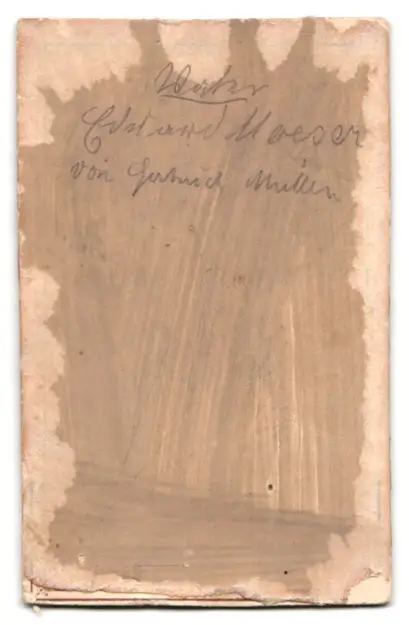 Vater
Eduard Moeser
von Gertrud Müller